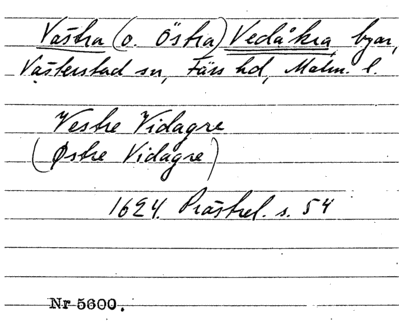 Västra (o. Östra) Vedåkra byar,
Västerstad sn, Färs hd, Malm. l.
Vestre Vidagre
(Østre Vidagre)
1624. Prästrel. s. 54
Nr 5600.